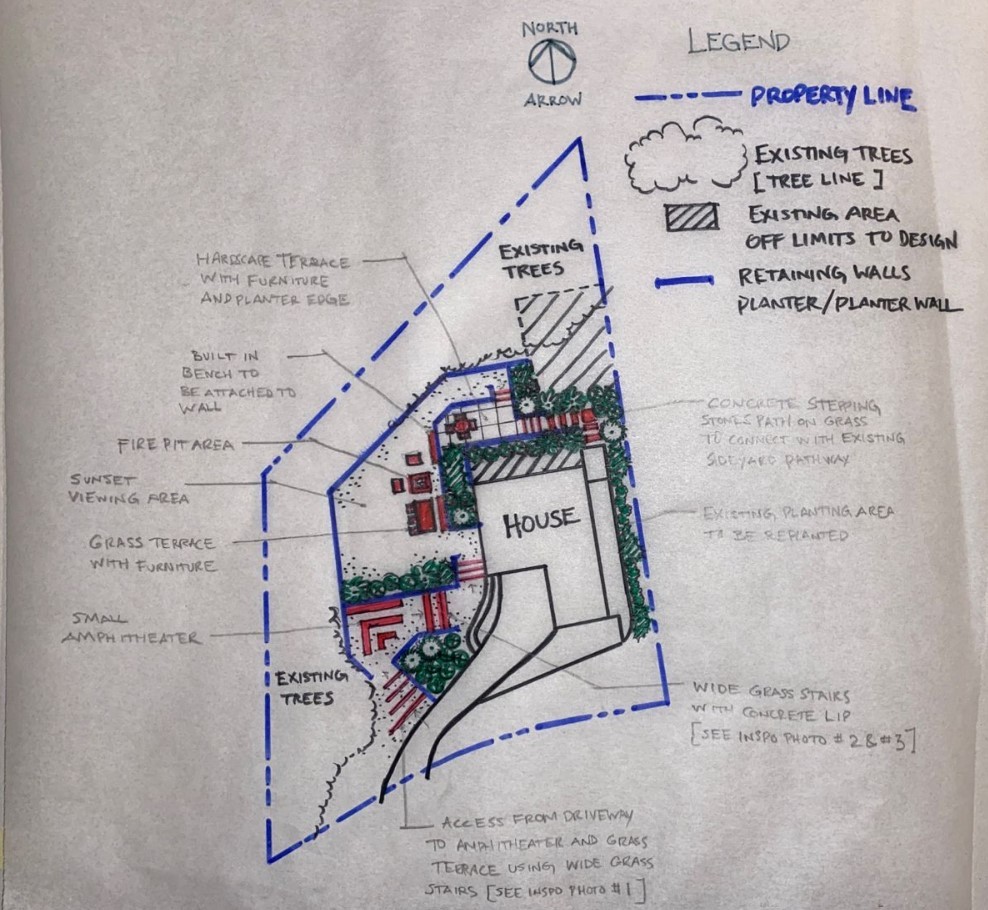 NORTH
ARROW
LEGEND
PROPERTY LINE
EXISTING TREES
[TREE LINE]
EXISTING AREA
OFF LIMITS TO DESIGN
RETAINING WALLS
PLANTER/PLANTER WALL
EXISTING
TREES
HARDSCAPE TERRACE
WITH FURNITURE
AND PLANTER EDGE
BUILT IN
BENCH TO
BE ATTACHED TO
WALL
FIRE PIT AREA
SUNSET
VIEWING AREA
GRASS TERRACE
WITH FURNITURE
SMALL
AMPHITHEATER
EXISTING
TREES
HOUSE
CONCRETE STEPPING
STONES PATH ON GRASS
TO CONNECT WITH EXISTING
SIDEYARD PATHWAY
EXISTING PLANTING AREA
TO BE REPLANTED
WIDE GRASS STAIRS
WITH CONCRETE LIP
[SEE INSPO PHOTO #2 & #3]
ACCESS FROM DRIVEWAY
TO AMPHITHEATER AND GRASS
TERRACE USING WIDE GRASS
STAIRS [SEE INSPO PHOTO #1]